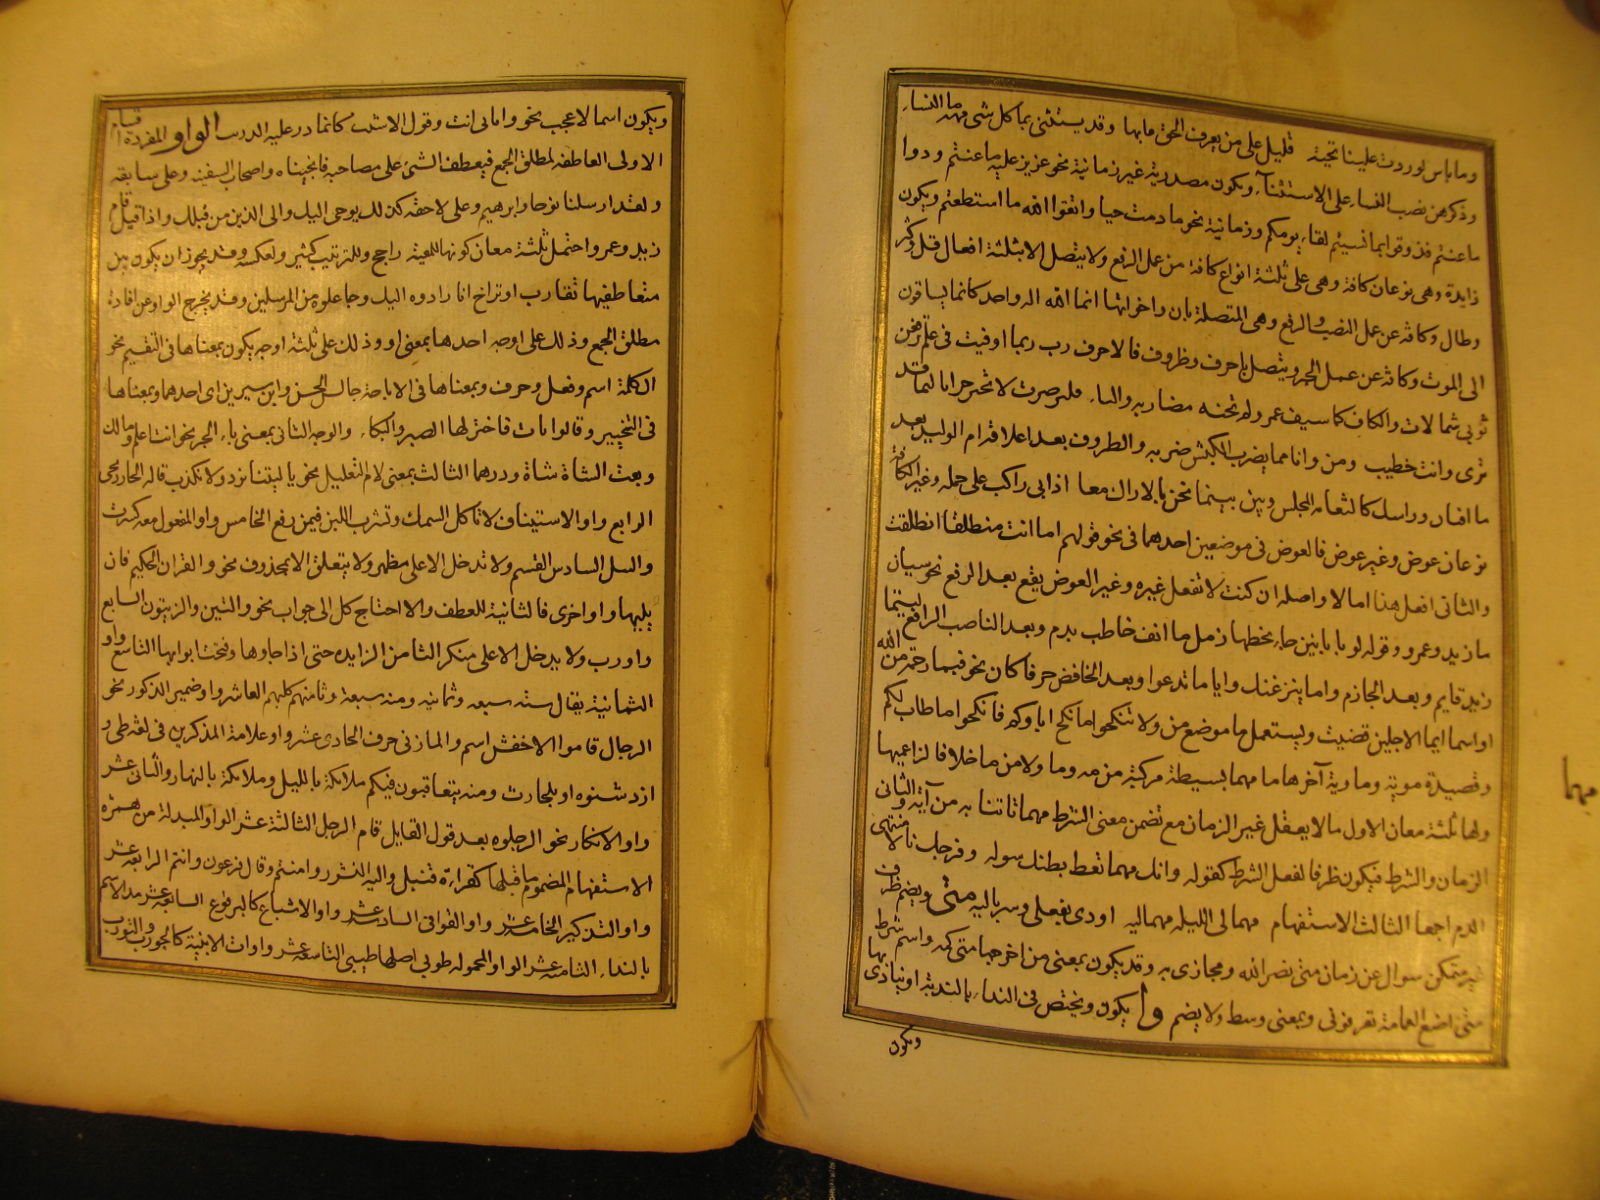 وما باس لو ردت علينا تحية قليل على من يعرف الحق عابها وقد يستثنى بما كل شى مهه ما النساء
وذكرهن نصب النساء على الاستثناء ويكون مصدرية غير زمانية نحو عزيز عليه ما عنتم ودوا
ما عنتم فذوقوا بما نسيتم لقاء يومكم وزمانية نحو ما دمت حيا واتقوا الله ما استطعتم ويكون
زايدة وهى نوعان كافة وهى على ثلثة انواع كافة من عمل الرفع ولا يتصل الا بثلثة افعال قل وكثر
وطال وكافة عن عمل النصب والرفع وهى المتصلة بان واخواتها انما الله اله واحد كانما يساقون
الى الموت وكافة عن عمل الجر ويتصل باحرف وظروف فالاحرف رب ربما اوفيت فى علم ترفعن
ثوبى شمالات والكاف كما سيف عمرو لم تخنه مضاربه والباء فلئن صرت لا تحير جوابا لبما قد
ترى وانت خطيب ومن وانا مما يضرب الكبش ضربه والظروف بعد اعلاقة ام الوليد بعد
ما افنان وراسك كالثغام المخلس وبين بينما نحن بالاراك معا اذ اتى راكب على جمله وغير الكافة
نوعان عوض وغير عوض فالعوض فى موضعين احدهما فى نحو قولهم اما انت منطلقا انطلقت
والثانى افعل هذا اما لا واصله ان كنت لا تفعل غيره وغير العوض يقع بعد الرفع نحو سيان
ما زيد وعمرو وقوله لو بابانين جاء يخطبها زمل ما انف خاطب بدم وبعد الناصب الرافع ليتما
زيد قايم وبعد الجازم واما ينزغنك وايا ما تدعوا وبعد الخافض حرفا كان نحو فبما رحمة من الله
او اسما ايما الاجلين قضيت ويستعمل ما موضع من ولا تنكحوا ما نكح اباوكم فانكحوا ما طاب لكم
وقصيدة موية وماوية آخرها ما مهما بسيطة مركبة من مه وما ولا من ما خلافا لزاعميها
ولها ثلثة معان الاول ما لا يعقل غير الزمان مع تضمن معنى الشرط مهما تاتنا به من آية والثانى
الزمان والشرط فيكون ظرفا لفعل الشرط كقوله وانك مهما تعط بطنك سوله وفرجك نالا منتهى
الذم اجمعا الثالث الاستفهام مهما لى الليلة مهما ليه اودى بنعلى وسرباليه متى ويضم ظرف
غير متمكن سوال عن زمان متى نصر الله ومجازى به وقد يكون بمعنى من اخرجها متى كمه واسم شرط
متى اضع العمامة تعرفونى وبمعنى وسط ولا يضم وا يكون ويختص فى النداء بالندبة او ينادى بها
ويكون
مهما
ويكون اسما لاعجب نحو وا بابى انت وقول الاشنب كانما ذر عليه الزرنب الواو المفردة اقسام
الاولى العاطفة لمطلق الجمع فيعطف الشئ على مصاحبه فانجيناه واصحاب السفينة وعلى سابقه
ولقد ارسلنا نوحا وابرهيم وعلى لاحقه كذلك يوحى اليك والى الذين من قبلك واذا قيل قام
زيد وعمرو احتمل ثلثة معان كونها للمعية راجح وللترتيب كثير ولعكسه وقد يجوز ان يكون بين
متعاطفيها تقارب او تراخ انا رادوه اليك وجاعلوه من المرسلين وقد يخرج الواو عن افادة
مطلق الجمع وذلك على اوجه احدها بمعنى او وذلك على ثلثة اوجه يكون بمعناها فى التقسيم نحو
الكلمة اسم وفعل وحرف وبمعناها فى الاباحة جالس الحسن وابن سيرين اى احدهما وبمعناها
فى التخيير وقالوا نات فاختر لها الصبر والبكاء والوجه الثانى بمعنى باء الجر نحو انت اعلم ومالك
وبعت الشاة شاة ودرهما الثالث بمعنى لام التعليل نحو يا ليتنا نرد ولا نكذب قاله الخارزنجى
الرابع واو الاستيناف لا تاكل السمك وتشرب اللبن فيمن رفع الخامس واو المفعول معه كسرت
والنيل السادس القسم ولا تدخل الا على مظهر ولا يتعلق الا بمحذوف نحو والقران الحكيم فان
يليها واو اخرى فالثانية للعطف والا احتاج كل الى جواب نحو والتين والزيتون السابع
واو رب ولا يدخل الا على منكر الثامن الزايدة حتى اذا جاوها وفتحت ابوابها التاسع واو
الثمانية يقال ستة سبعة وثمانية ومنه سبعة وثامنهم كلبهم العاشر واو ضمير الذكور نحو
الرجال قاموا الاخفش اسم والمازنى حرف الحادى عشر واو علامة المذكرين فى لغة طى و
ازد شنوه او بلحارث ومنه يتعاقبون فيكم ملائكة بالليل وملائكة بالنهار والثانى عشر
واو الانكار نحو الرجلوه بعد قول القايل قام الرجل الثالثة عشر الواو المبدلة من همزة
الاستفهام المضموم ما قبلها كقراءة قنبل واليه النشور وامنتم وقال فرعون وانتم الرابعة عشر
واو التذكير الخامسة عشر واو القوافى السادسة عشر واو الاشباع كالبرقوع السابعة عشر مد الاسم
بالنداء الثامنة عشر الواو المحولة طوبى اصلها طيبى التاسعة عشر واوات الابنية كالجورب والتورب